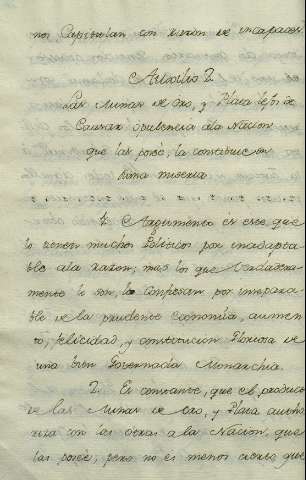 nos Capistulan con razon de incapaces.
Articulo 2.
Las Minas de oro, y Plata lejos de
Causar opulencia ala Nacion
que las poseè, la constituien
suma miseria.
1. Argumento es este que
lo tienen muchos Politicos por inadapta
ble ala razon; mas los que verdadera-
mente lo son, lo Comprèan por insepara
ble de la prudente economia, aumen
to, felicidad, y constitucion Floriosa de
una bien Governada Monarchia.
2. Es constante, que el producto
de las Minas de oro, y Plata autho
riza con los otras a la Nacion, que
las poseè; pero no es menos cierto, que